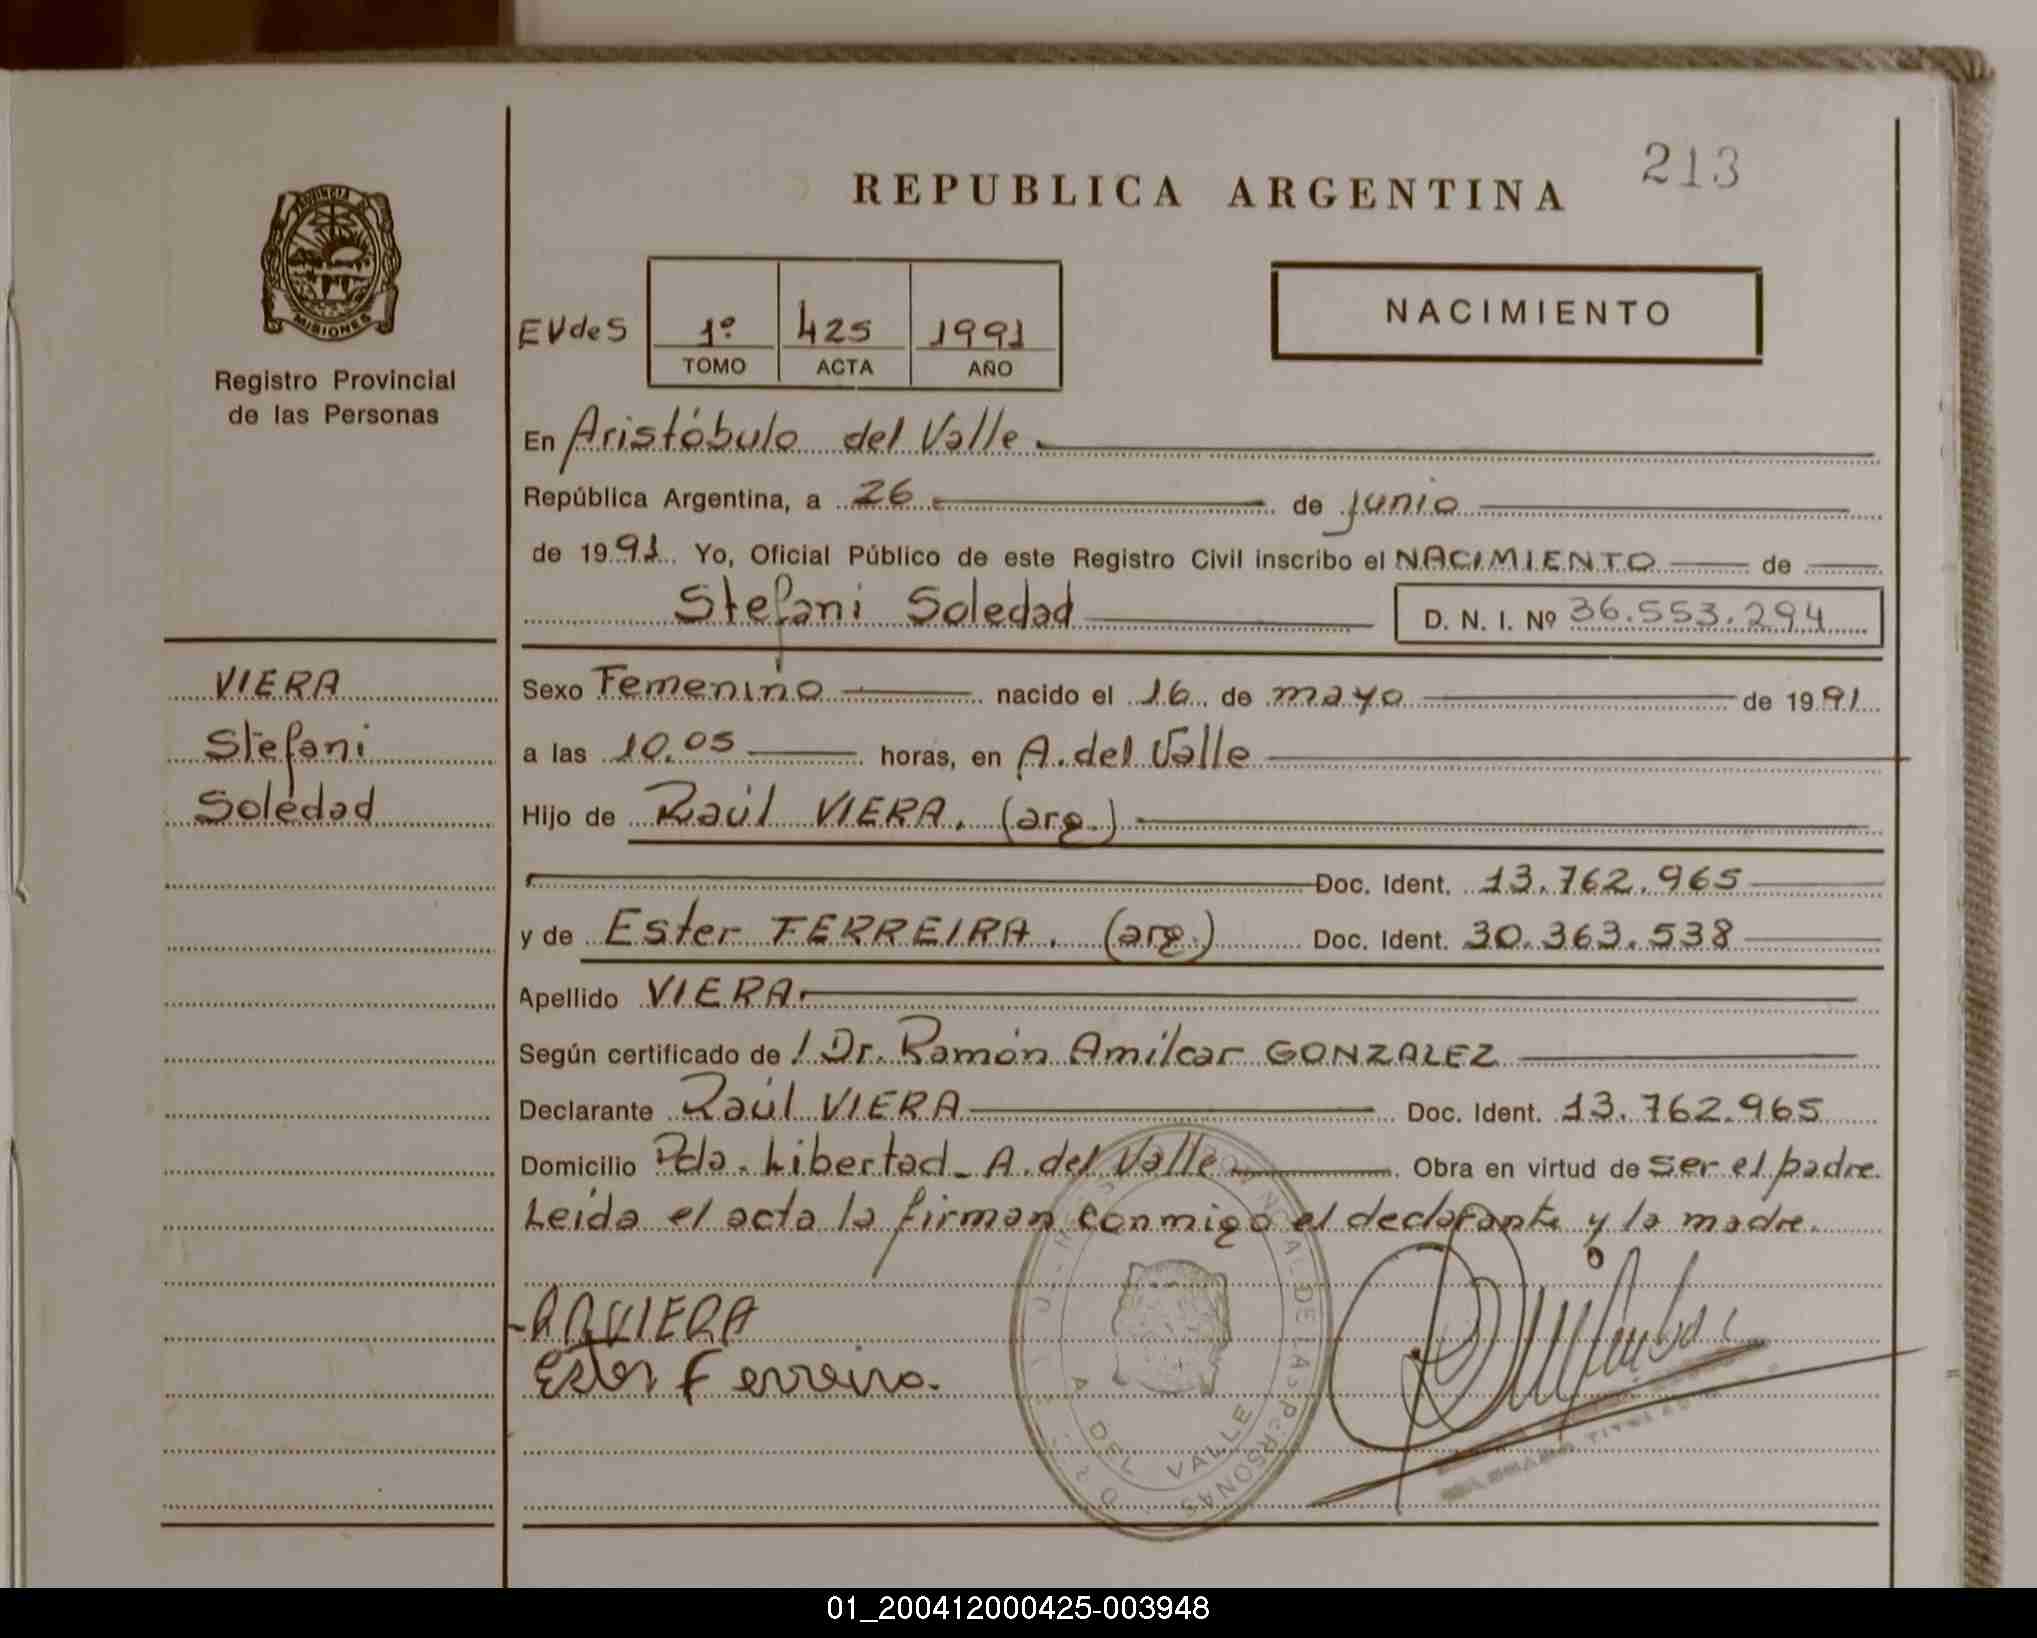 213
REPUBLICA ARGENTINA
PROVINCIA DE
MISIONES
Registro Provincial
de las Personas
EVdeS 1º 425 1991
TOMO ACTA AÑO
NACIMIENTO
En Aristóbulo del Valle
República Argentina, a 26 de junio
de 1991 Yo, Oficial Público de este Registro Civil inscribo el NACIMIENTO de
Stefani Soledad D. N. I. Nº 36.553.294
VIERA
Stefani
Soledad
Sexo Femenino nacido el 16 de mayo de 1991
a las 10.05 horas, en A. del Valle
Hijo de Raúl VIERA. (arg.)
Doc. Ident. 13.762.965
y de Ester FERREIRA. (arg.) Doc. Ident. 30.363.538
Apellido VIERA
Según certificado de Dr. Ramón Amilcar GONZALEZ
Declarante Raúl VIERA Doc. Ident. 13.762.965
Domicilio Pda. Libertad - A. del Valle Obra en virtud de ser el padre.
Leída el acta la firman conmigo el declarante y la madre.
VIERA
Ester Ferreira.
DE LAS PERSONAS
A. DEL VALLE
TITULAR
01_200412000425-003948